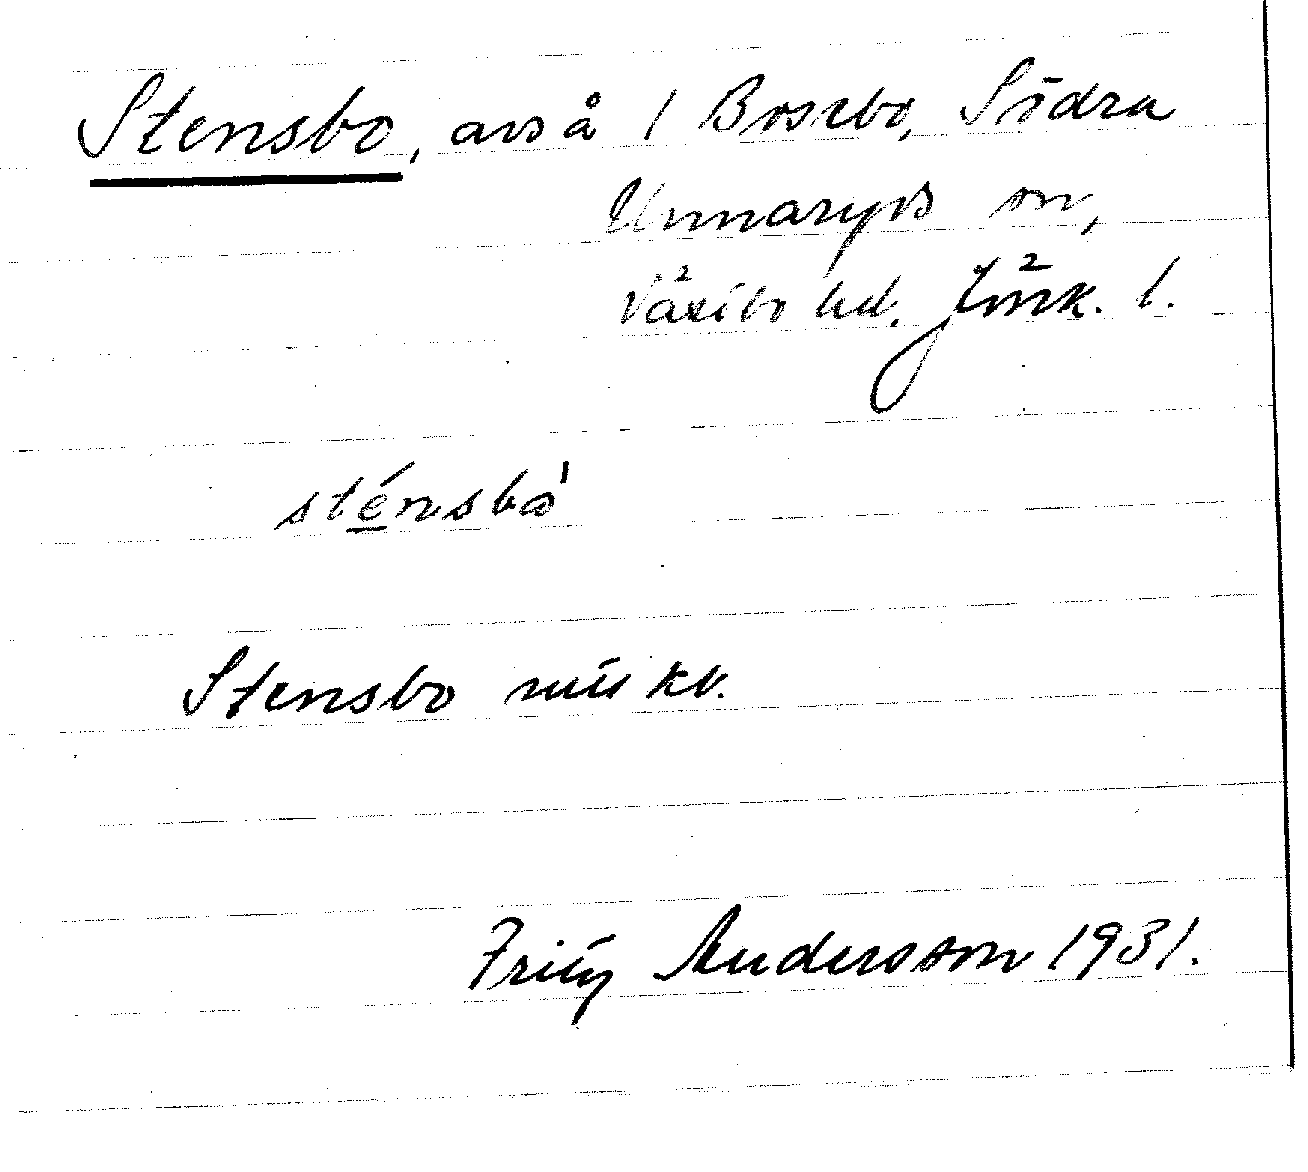 Stensbo, avs å 1 Bosebo, Södra
Unnaryds sn,
Västbo hd. Jönk. l.
sténsbo'
Stensbo mtlkv.
Fritz Andersson 1931.